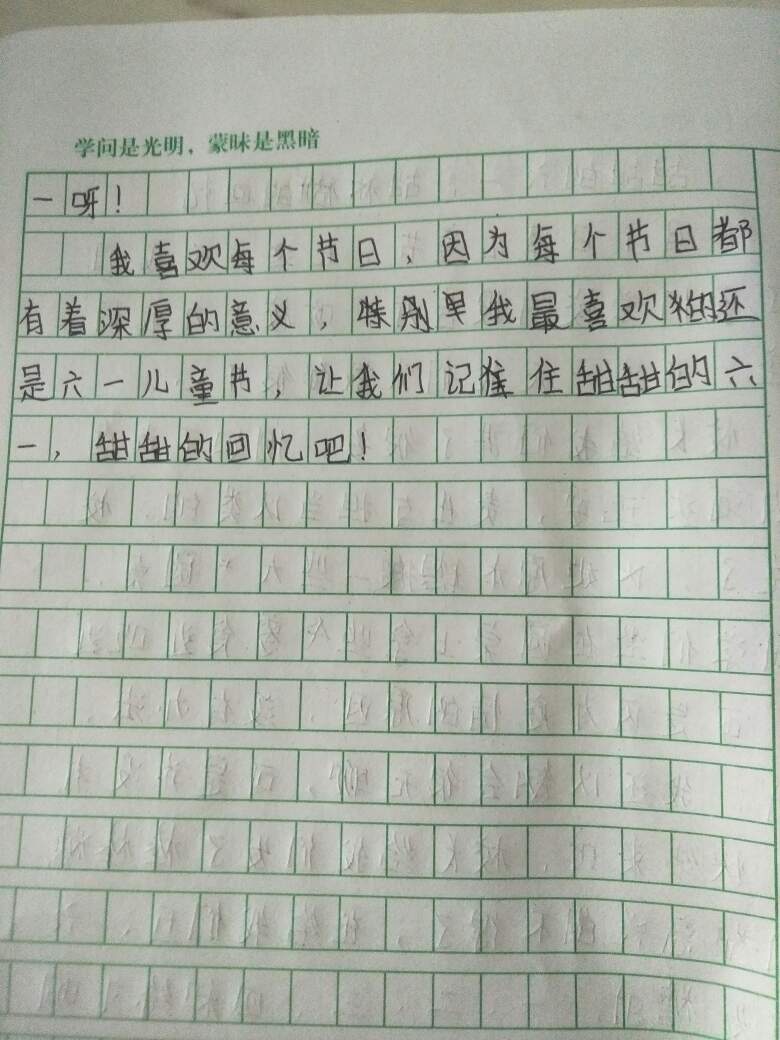 学问是光明，蒙昧是黑暗
一呀！
我喜欢每个节日，因为每个节日都
有着深厚的意义，特别早我最喜欢的还
是六一儿童节，让我们记住甜甜的六
一，甜甜的回忆吧！